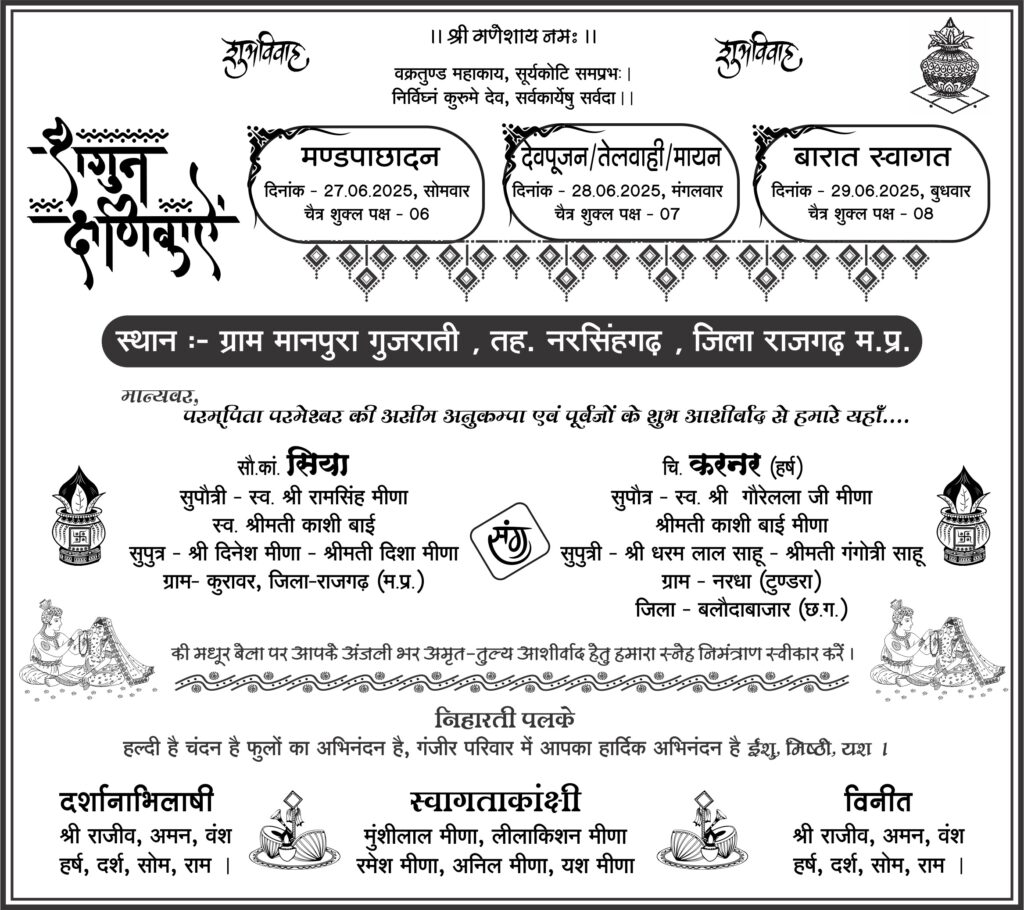 शुभविवाह
।। श्री गणेशाय नमः ।।
शुभविवाह
वक्रतुण्ड महाकाय, सूर्यकोटि समप्रभः।
निर्विघ्नं कुरुमे देव, सर्वकार्येषु सर्वदा।।
शगुन
क्षणिकाऐं
मण्डपाछादन
दिनांक - 27.06.2025, सोमवार
चैत्र शुक्ल पक्ष - 06
देवपूजन/तेलवाही/मायन
दिनांक - 28.06.2025, मंगलवार
चैत्र शुक्ल पक्ष - 07
बारात स्वागत
दिनांक - 29.06.2025, बुधवार
चैत्र शुक्ल पक्ष - 08
स्थान :- ग्राम मानपुरा गुजराती , तह. नरसिंहगढ़ , जिला राजगढ़ म.प्र.
मान्यवर,
परम्पिता परमेश्वर की असीम अनुकम्पा एवं पूर्वजों के शुभ आशीर्वाद से हमारे यहाँ....
सौ.कां. सिया
सुपौत्री - स्व. श्री रामसिंह मीणा
स्व. श्रीमती काशी बाई
सुपुत्र - श्री दिनेश मीणा - श्रीमती दिशा मीणा
ग्राम- कुरावर, जिला-राजगढ़ (म.प्र.)
संग
चि. करनर (हर्ष)
सुपौत्र - स्व. श्री गौरेलला जी मीणा
श्रीमती काशी बाई मीणा
सुपुत्री - श्री धरम लाल साहू - श्रीमती गंगोत्री साहू
ग्राम - नरधा (टुण्डरा)
जिला - बलौदाबाजार (छ.ग.)
की मधूर बेला पर आपकै अंजली भर अमृत-तुल्य आशीर्वाद हेतु हमारा स्नैह निमंत्राण स्वीकार करें।
निहारती पलके
हल्दी है चंदन है फुलों का अभिनंदन है, गंजीर परिवार में आपका हार्दिक अभिनंदन है ईशु, मिष्ठी, यश ।
दर्शानाभिलाषी
श्री राजीव, अमन, वंश
हर्ष, दर्श, सोम, राम ।
स्वागताकांक्षी
मुंशीलाल मीणा, लीलाकिशन मीणा
रमेश मीणा, अनिल मीणा, यश मीणा
विनीत
श्री राजीव, अमन, वंश
हर्ष, दर्श, सोम, राम ।